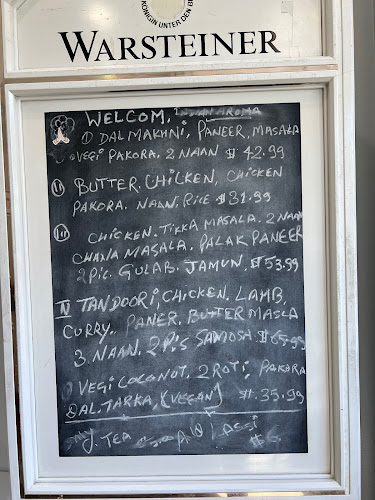 KÖNIGIN UNTER DEN B
WARSTEINER
WELCOM, INDIAN AROMA
① DAL MAKHNI, PANEER, MASALA
VEGI PAKORA. 2 NAAN $ 42.99
II BUTTER. CHICKEN, CHICKEN
PAKORA. NAAN, RICE $ 31.99
III CHICKEN. TIKKA MASALA. 2 NAAN
CHANA MASALA, PALAK PANEER
2 PiC. GULAB. JAMUN. $ 53.99
IV TANDOORI, CHICKEN. LAMB,
CURRY. PANER. BUTTER MASLA
3. NAAN. 2 Pis SAMOSA. $ 65.99
VEGI COCONUT, 2 ROTI, PAKORA
DAL. TARKA, (VEGAN) $. 35.99
TEA